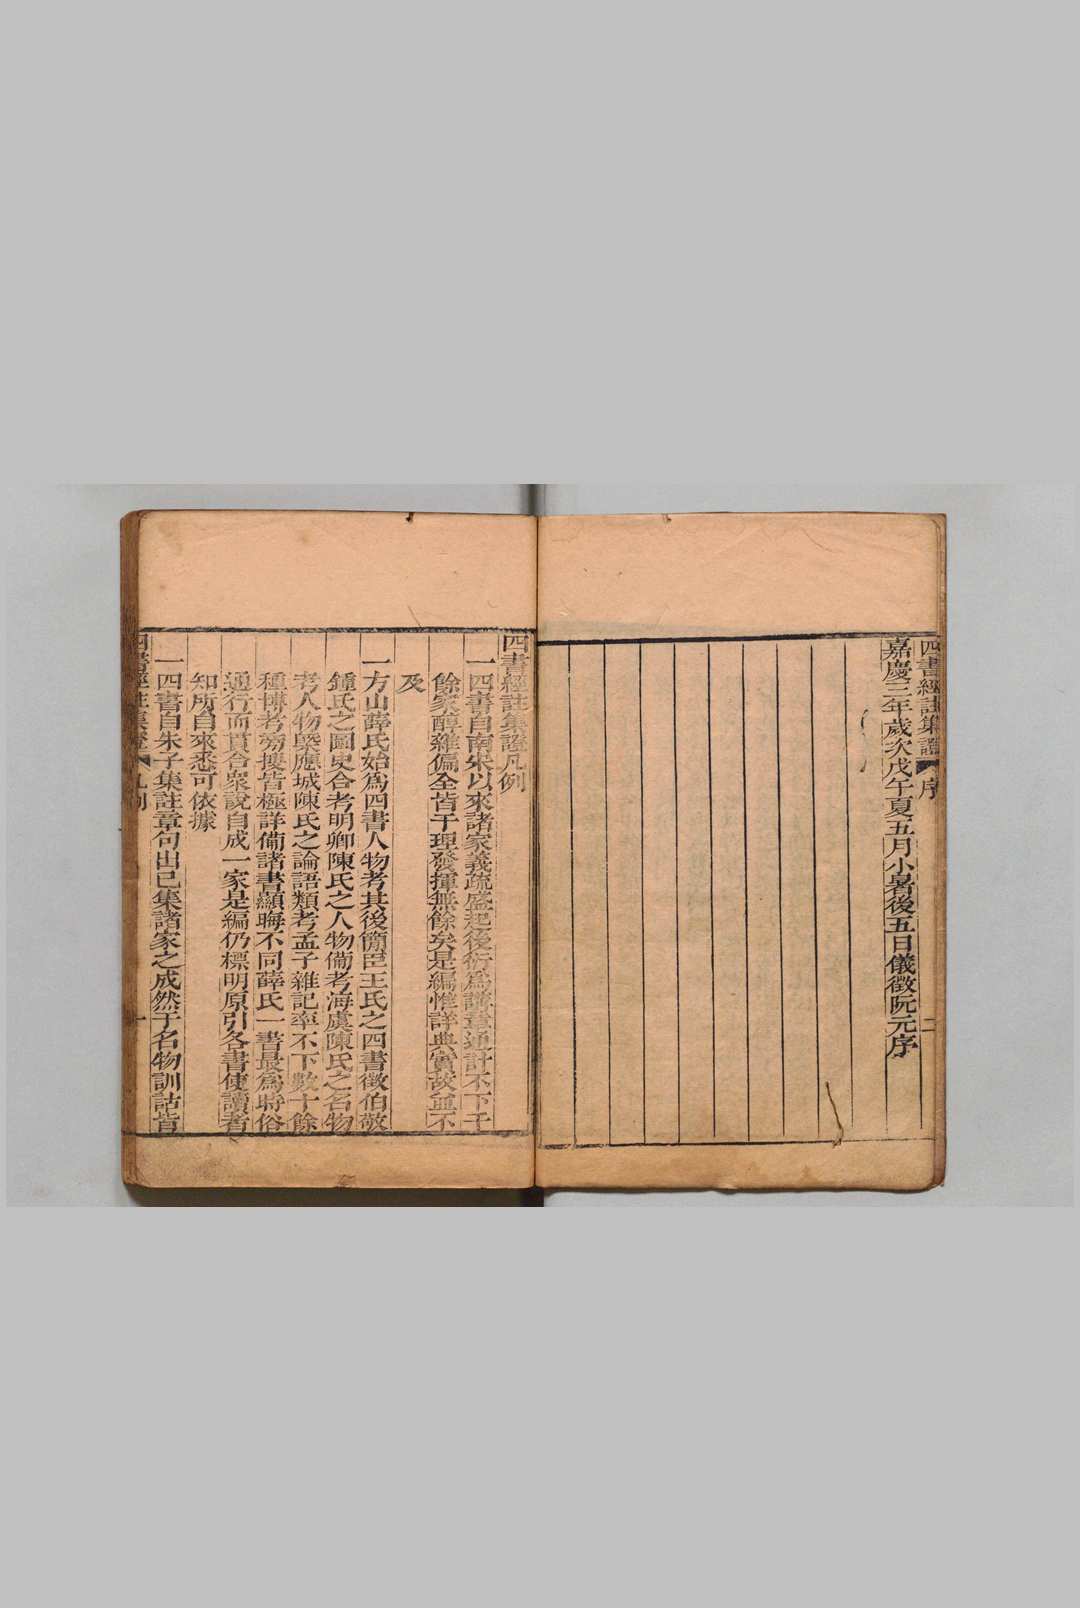 四書經註集證 序 二
嘉慶三年歲次戊午夏五月小暑後五日儀徵阮元序
四書經註集證凡例
一四書自南宋以來諸家義疏盛起後衍為講章通計不下千
餘家醇雜偏全皆于理發揮無餘矣是編惟詳典實故並不
及
一方山薛氏始為四書人物考其後簡臣王氏之四書徵伯敬
鍾氏之圖史合考明卿陳氏之人物備考海虞陳氏之名物
考人物槩應城陳氏之論語類考孟子雜記率不下數十餘
種博考旁搜皆極詳備諸書顯晦不同薛氏一書最為時俗
通行而貫合衆說自成一家是編仍標明原引各書使讀者
知所自來悉可依據
一四書自朱子集註章句出已集諸家之成然于名物訓詁皆
四書經註集證 凡例 一